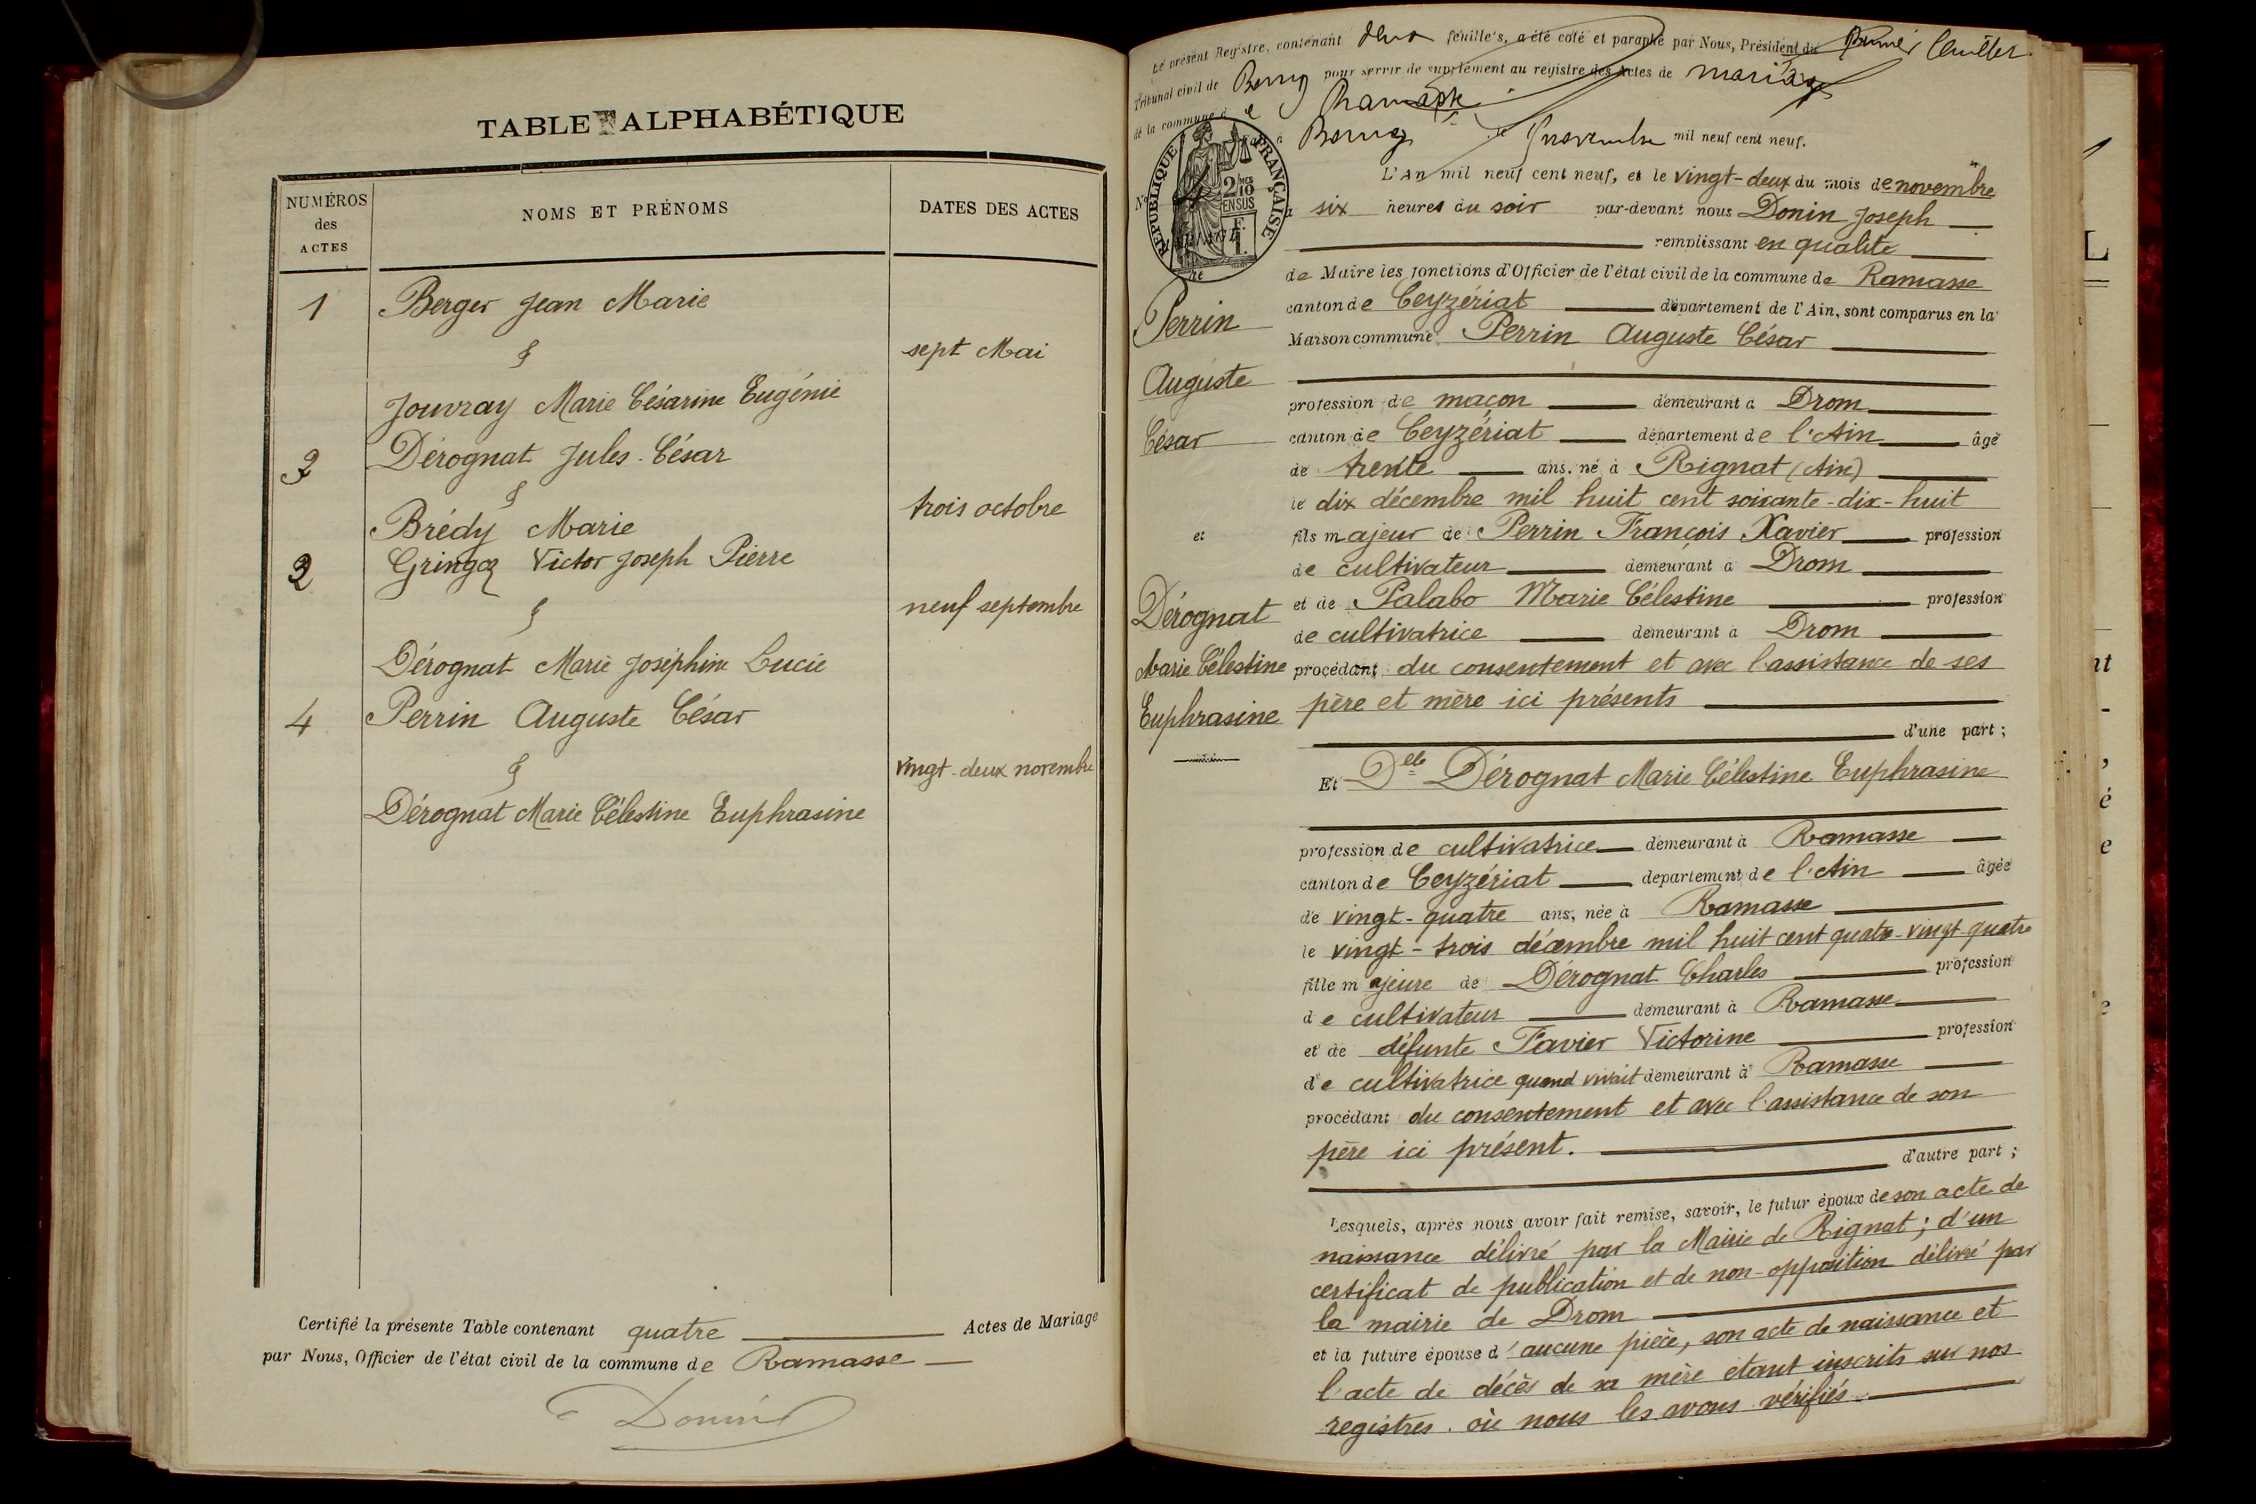 TABLE ALPHABÉTIQUE
NUMÉROS
des
ACTES
NOMS ET PRÉNOMS
DATES DES ACTES
1 Berger Jean Marie
&
sept Mai
Jouvray Marie Césarine Eugénie
3 Dérognat Jules César
&
trois octobre
Brédy Marie
2 Gringoz Victor Joseph Pierre
&
neuf septembre
Dérognat Marie Joséphine Lucie
4 Perrin Auguste César
&
vingt-deux novembre
Dérognat Marie Célestine Euphrasine
Certifié la présente Table contenant quatre Actes de Mariage
par Nous, Officier de l'état civil de la commune de Ramasse
Donin
Le présent Registre, contenant deux feuilles, a été coté et paraphé par Nous, Président du
Tribunal civil de Bourg pour servir de supplément au registre des Actes de mariage
de la commune de Ramasse
à Bourg le novembre mil neuf cent neuf.
RÉPUBLIQUE FRANÇAISE
2/10
EN SUS
L'An mil neuf cent neuf, et le vingt-deux du mois de novembre
à six heures du soir par-devant nous Donin Joseph
remplissant en qualité
de Maire les fonctions d'Officier de l'état civil de la commune de Ramasse
canton de Ceyzériat département de l'Ain, sont comparus en la
Maison commune Perrin Auguste César
profession de maçon demeurant à Drom
canton de Ceyzériat département de l'Ain âgé
de trente ans, né à Rignat (Ain)
le dix décembre mil huit cent soixante-dix-huit
fils majeur de Perrin François Xavier profession
de cultivateur demeurant à Drom
et de Palabo Marie Célestine profession
de cultivatrice demeurant à Drom
procédant du consentement et avec l'assistance de ses
père et mère ici présents
d'une part ;
Et Delle Dérognat Marie Célestine Euphrasine
profession de cultivatrice demeurant à Ramasse
canton de Ceyzériat département de l'Ain âgée
de vingt-quatre ans, née à Ramasse
le vingt-trois décembre mil huit cent quatre-vingt-quatre
fille majeure de Dérognat Charles profession
de cultivateur demeurant à Ramasse
et de défunte Favier Victorine profession
de cultivatrice quand vivait demeurant à Ramasse
procédant du consentement et avec l'assistance de son
père ici présent.
d'autre part ;
Lesquels, après nous avoir fait remise, savoir, le futur époux de son acte de
naissance délivré par la Mairie de Rignat ; d'un
certificat de publication et de non-opposition délivré par
la mairie de Drom
et la future épouse d'aucune pièce, son acte de naissance et
l'acte de décès de sa mère étant inscrits sur nos
registres où nous les avons vérifiés.
Perrin
Auguste
César
et
Dérognat
Marie Célestine
Euphrasine